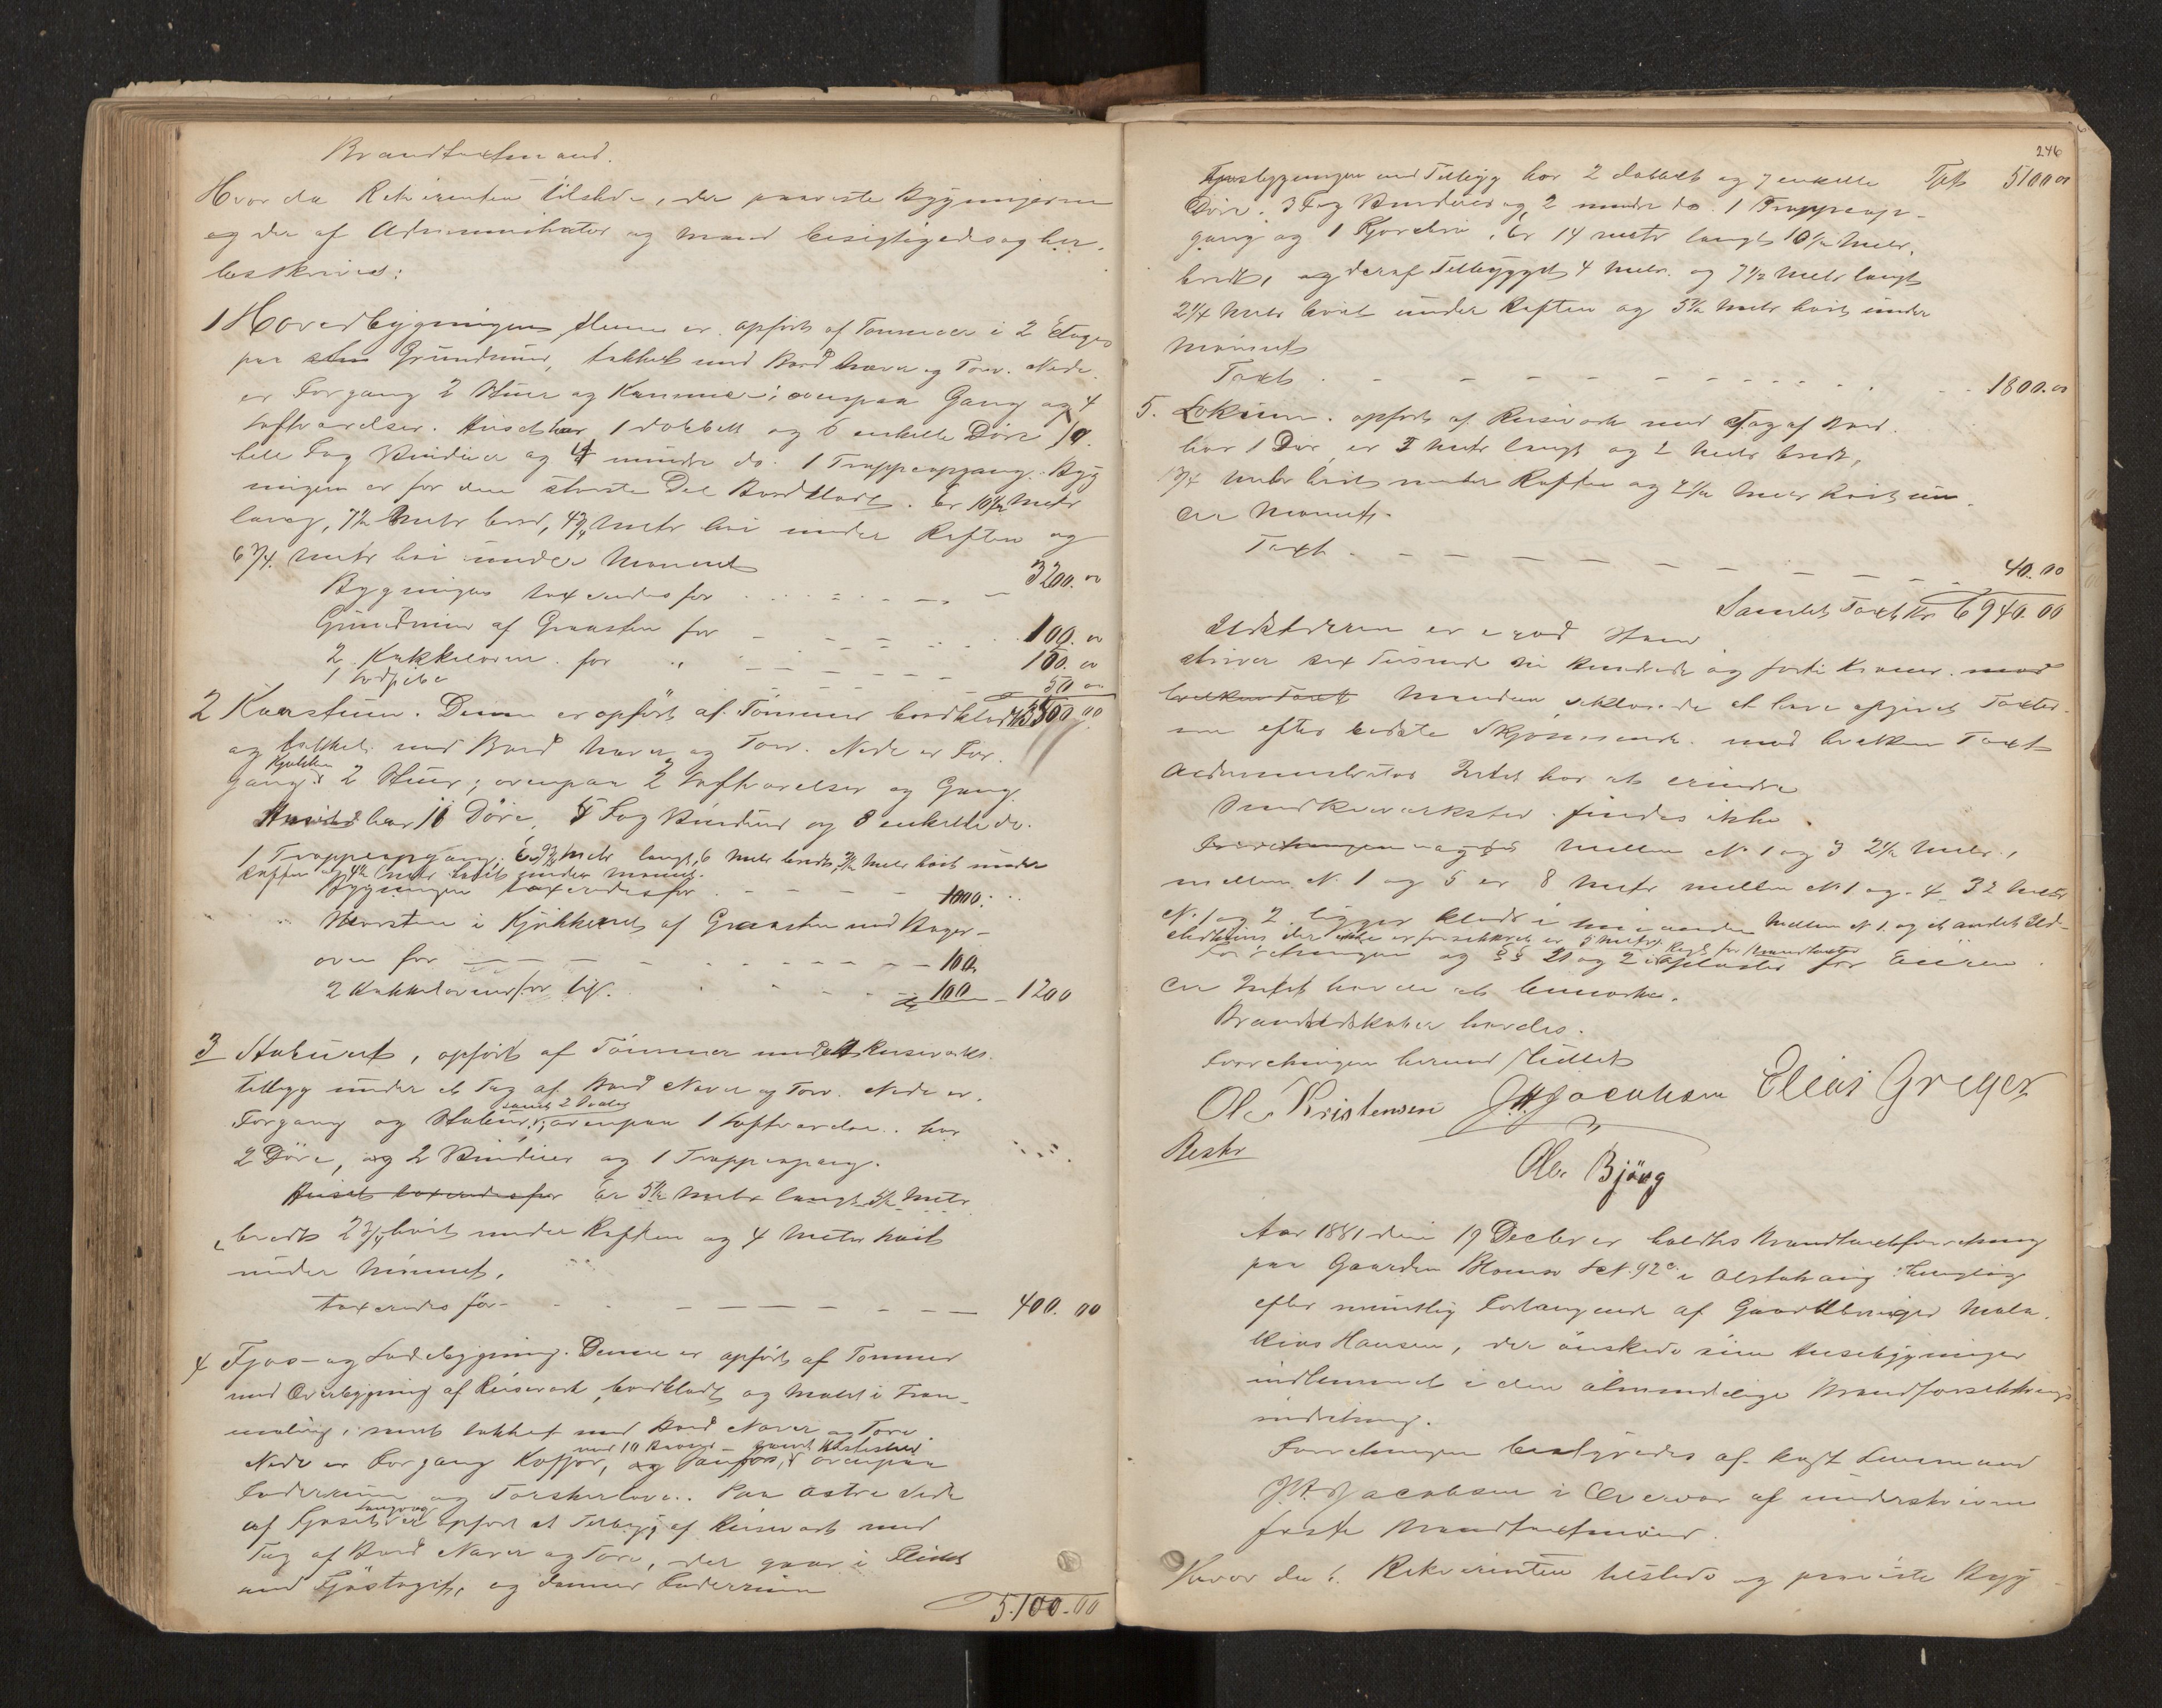 Brandtaxtmænd.
Hvor da Rekvirenten tilstede, der paaviste Bygningerne
og der af Administrator og Mænd besigtigedes og her
beskrives:
1 Hovedbygningen denne er opført af Tømmer i 2 Etager
paa sten Grundmuur, tækket med Bord Næver og Torv. Nede
er Forgang 2 Stuer og Kammer; ovenpaa Gang og 4
Loftværelser. Huset har 1 dobbelt og 6 enkelte Døre, 10
hele Fag Vinduer og 4 mindre do. 1 Trappeopgang. Byg
ningen er for den største Del Bordklædt. Er 10½ Meter
lang, 7½ Meter bred, 4¾ Meter høi under Raften og
6¾ Meter høi under Mønnet
Bygningen taxeredes for 3200.00
Grundmuur af Graasten for 100.00
2 Kakkelovne for 100.00
1 50.00
2 Kaarstuen. Denne er opført af Tømmer bordklædt 3500 00
og tækket med Bord Næver og Torv. Nede er For
gang Kjøkken 2 Stuer; ovenpaa 2 Loftværelser og Gang.
Huset har 11 Døre, 5 Fag Vinduer og 8 enkelte do.
1 Trappeopgang. Er 9¾ Meter langt, 6 Meter bredt, Meter høit under
Raften og 4½ Meter høit under Mønnet.
Bygningen taxeredes for 1000.
Skorsten i Kjøkkenet af Graasten med Bager-
oven for 100.
2 Kakkelovne for 100 1200
3 Staburet, opført af Tømmer med et Reisværks
Tilbyg under et Tag af Bord Næver og Torv. Nede er
Forgang og Stabur, samt 2 ovenpaa 1 Loftværelse. har
2 Døre, og 2 Vinduer og 1 Trappeopgang.
Huset taxeredes for Er 5½ Meter langt 5½ Meter
bredt 2¾ høit under Raften og 4 Meter høit
under Mønnet.
taxeredes for 400.00
4 Fjøs- og Ladebygning. Denne er opført af Tømmer
med Overbygning af Reisværk, bordklædt og Malet i Tran-
maling, samt tækket med Bord Næver og Torv
med 10 Baase - samt Hestestald
Nede er Forgang Kofjøs, og Saufjøs, ovenpaa
Laderum og Tørskerlove. Paa østre Side
af Fjøset er opført et Tilbyg af Reisværk med
Tag af Bord Næver og Torv, der gaar i Flidt
med Fjøstaget, og danner Laderum
5.100.00
246
Fjøsbygningen med Tilbyg har 2 dobbelt og 7 enkelte Tfl 5100 00
Døre. 3 Fag Vinduer og 2 mindre do. 1 Trappeop-
gang og 1 Kjørebro. Er 14 Meter langt 10½ Meter
bredt, og deraf Tilbygget 4 Meter og 7½ Meter langt
2¼ Meter høit under Raften og 5½ Meter høit under
Mønnet
Taxt 1800.00
5. Lokum. opført af Reisværk med Tag af Bord.
har 1 Dør er 3 Meter langt og 2 Meter bredt,
1¾ Meter høit under Raften og 2½ Meter høit un
der Mønnet.
Taxt 40.00
Samlet Taxt Kr 6940.00
Ildstederne er i god Stand
skriver sex Tusinde ni hundrede og førti Kroner. mod
hvilken Taxt Mændene erklærede at have afgivet Taxter-
ne efter bedste Skjønnende. mod hvilken Taxt
Administrator Intet har at erindre
Smedieværksted findes ikke.
Forretningen Mellem No 1 og 3 2½ Meter,
mellem No 1 og 5 er 8 Meter mellem No 1 og 4 32 Meter
No 1 og 2 ligger klods i hinanden Mellem No 1 og et andet Ild-
stedhuus der ikke er forsikret er 5 Meter.
Forretningen og §§ 21 og 2 oplæstes for Eieren
der Intet havde at bemærke.
Brandredskaber havdes.
Forretningen hermed sluttet
Ole Kristensen J. H. Jacobsen Elias Greger
Beskr
Ole Bjørg
Aar 1881 den 19 Decbr er holdtes Brandtaxtforretning
paa Gaarden Blomsø Lt. 92c i Alstahaug Thinglag
efter mundtlig Forlangende af Gaardbruger Mala
kias Hansen, der ønskede sine Husebygninger
indlemmet i den almindelige Brandforsikrings
indretning.
Forretningen bestyredes af kost Lensmand
J. H. Jacobsen i Overvær af underskrevne
faste Brandtaxtmænd.
Hvor da b. Rekvirenten tilstede og paaviste Byg